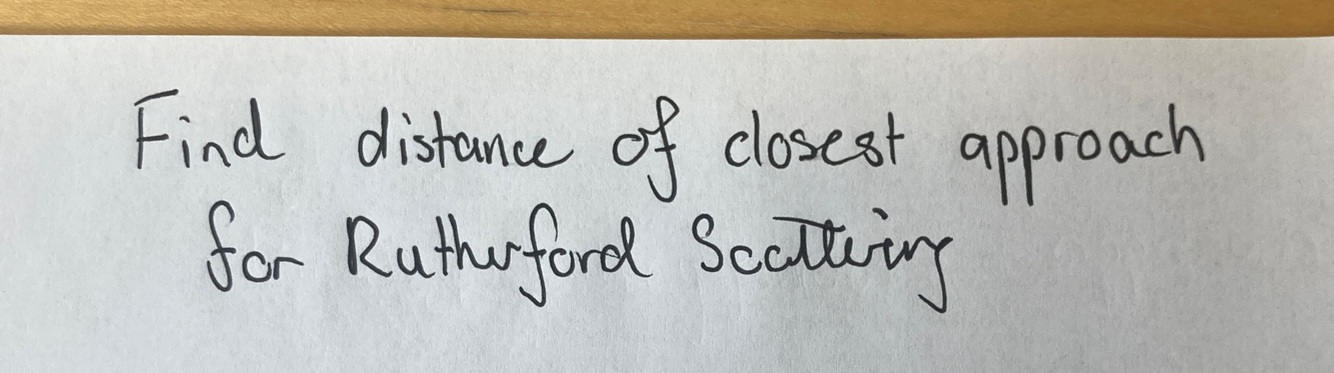 Find distance of closest approach
for Rutherford Scattering